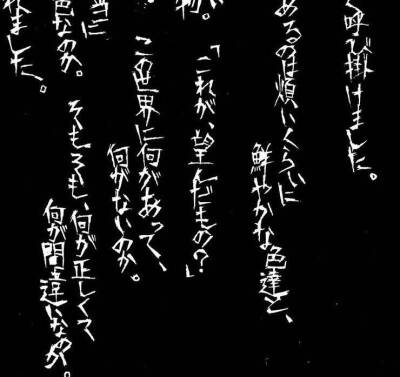 く呼び掛けました。
あるのは煩いくらいに
鮮やかな色達と、
物。
「これが、望んだもの？」
この世界に何があって、
何がないのか。
当に
色なのか。
そもそも、何が正しくて
何が間違いなのか。
れました。